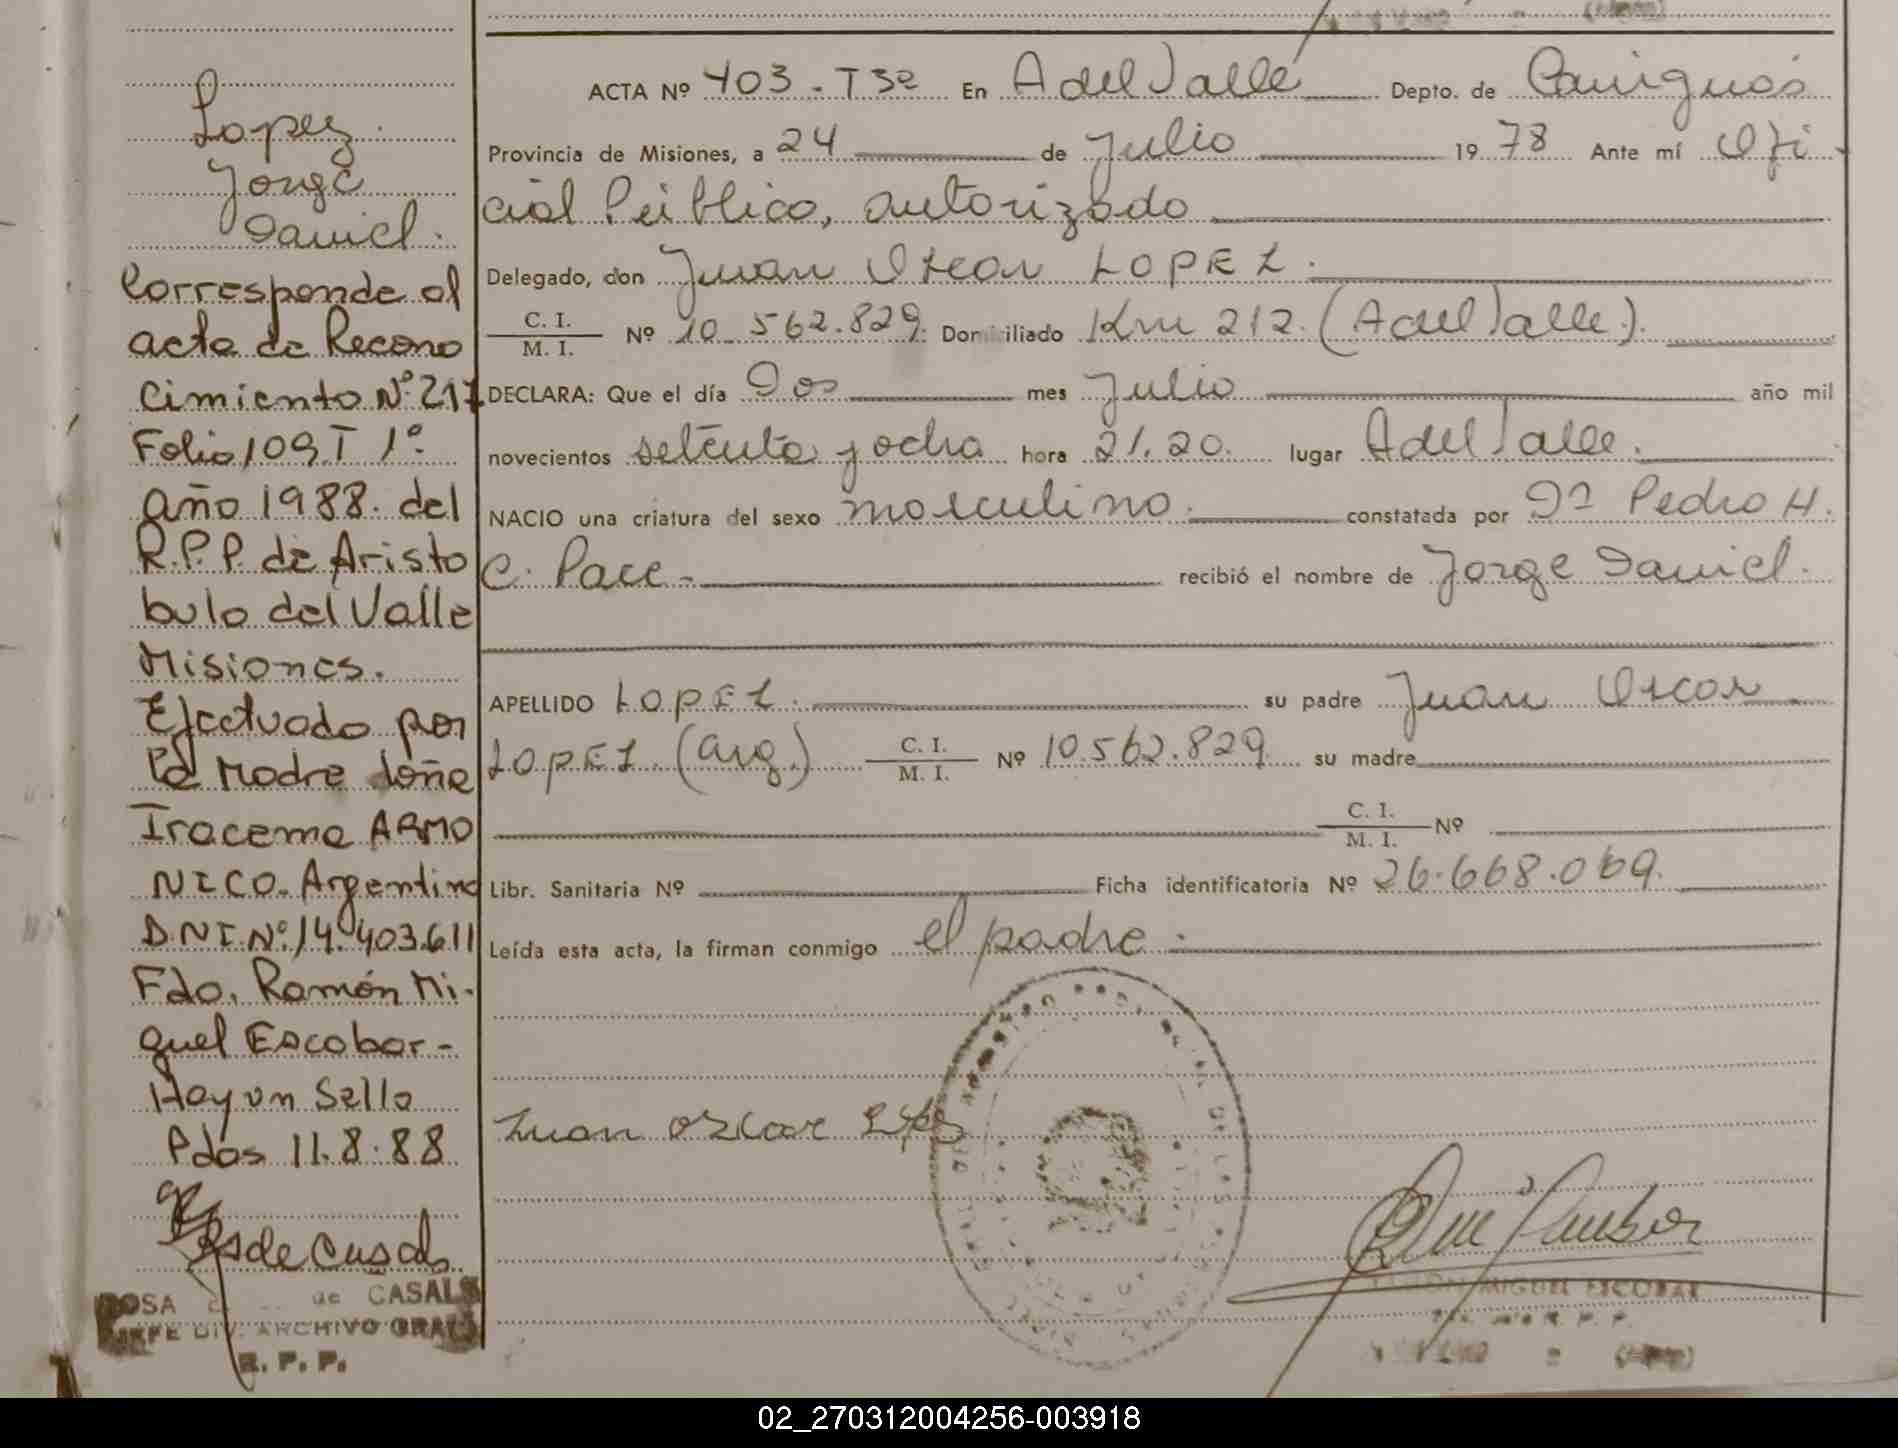 Lopez
Jorge
Daniel.
Corresponde al
acta de Recono
cimiento Nº 217
Folio 109 T 1º
año 1988. del
R.P.P. de Aristo
bulo del Valle
Misiones.
Efectuado por
la Madre doña
Iracema ARMO
NICO. Argentina
DNI Nº 14.403.611
Fdo. Ramón Mi-
guel Escobar-
Hay un Sello
Pdas 11.8.88
ROSA de CASALS
JEFE DIV. ARCHIVO GRAL
R. P. P.
ACTA Nº 403 - T3º En A del Valle Depto. de Cainguás
Provincia de Misiones, a 24 de Julio 1978 Ante mí Ofi-
cial Público, autorizado
Delegado, don Juan Oscar LOPEZ.
C. I.
M. I. Nº 10.562.829. Domiciliado Km 212. (A del Valle).
DECLARA: Que el día Dos mes Julio año mil
novecientos setenta y ocho hora 21.20. lugar A del Valle.
NACIO una criatura del sexo masculino. constatada por Dr Pedro H.
C. Pace - recibió el nombre de Jorge Daniel.
APELLIDO LOPEZ. su padre Juan Oscar
LOPEZ (arg.) C. I.
M. I. Nº 10.562.829. su madre
C. I.
M. I. Nº
Libr. Sanitaria Nº Ficha identificatoria Nº 26.668.069.
Leída esta acta, la firman conmigo el padre.
Juan Oscar
MIGUEL ESCOBAR
02_270312004256-003918